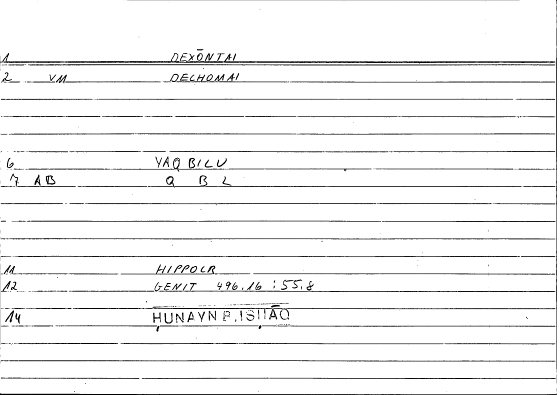 1 DEXŌNTAI
2 VM DELHOMAI
6 YAQBILU
7 AB Q B L
11 HIPPOCR
12 GENIT 496.16 : 55.8
14 ḤUNAYN B. ISḤĀQ